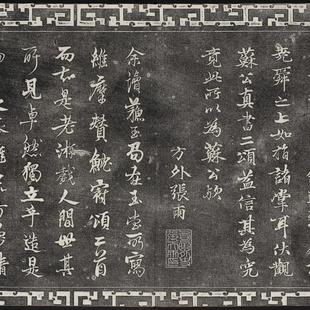 堯舜之上如指諸掌耳伏觀
蘇公真書二頌益信其為究
竟此所以為蘇公歟
方外張雨
余謂蘇玉局在玉堂所寫
維摩贊魫冠頌二首
而知是老游戲人間世其
所見卓然獨立乎造是